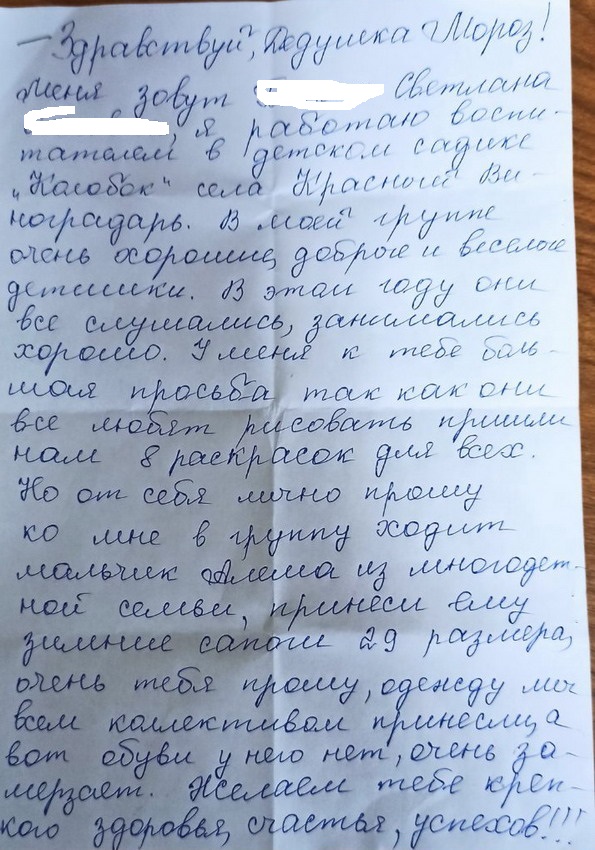 — Здравствуй, Дедушка Мороз!
Меня зовут Светлана
, я работаю воспи-
тателем в детском садике
„Колобок" села Красный Ви-
ноградарь. В моей группе
очень хорошие, добрые и веселые
детишки. В этом году они
все слушались, занимались
хорошо. У меня к тебе боль-
шая просьба так как они
все любят рисовать пришли
нам 8 раскрасок для всех.
Но от себя лично прошу
ко мне в группу ходит
мальчик из многодет-
ной семьи, принеси ему
зимние сапоги 29 размера,
очень тебя прошу, одежду мы
всем коллективом принесли, а
вот обуви у него нет, очень за-
мерзает. Желаем тебе креп-
кого здоровья, счастья, успехов!!!